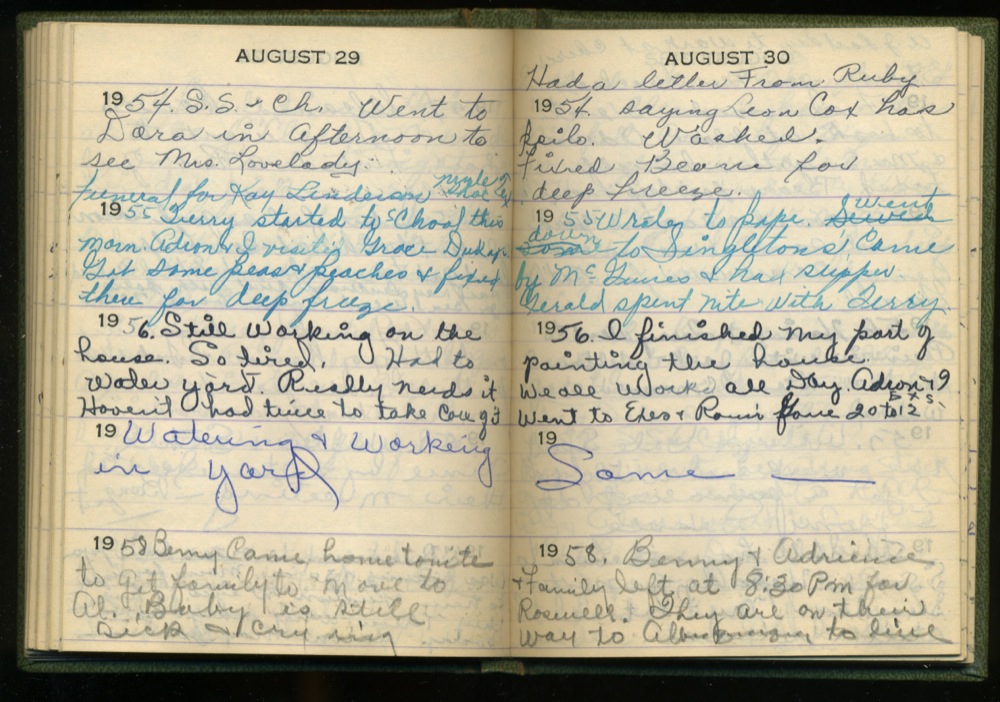 AUGUST 29
1954. S.S. & Ch. Went to
Dora in Afternoon to
see Mrs. Lovelady.
Funeral for Kay
1955 Jerry started to School this
morn. Adron & I visit Grace
Got some peas & peaches & fixed
them for deep freeze.
1956. Still working on the
house. So tired. Had to
water yard. Really needs it
Haven't had time to take care of it
19 Watering & Working
in yard
1958 Benny Came home tonite
to get family to move to
Al. Baby is still
sick & crying
AUGUST 30
Had a letter From Ruby
1954. saying Leon Cox has
polio. Washed.
Fixed Beans for
deep freeze.
1955 Wrote to papa. Went
down to Singletons' Came
by Mc & had supper.
Gerald spent nite with Jerry
1956. I finished my part of
painting the house
We all Work all Day. Adron & I
Went to 20 to 12
19
Same
1958. Benny & Adrience
& Family left at 8:30 Pm for
Roswell. They are on their
way to to live